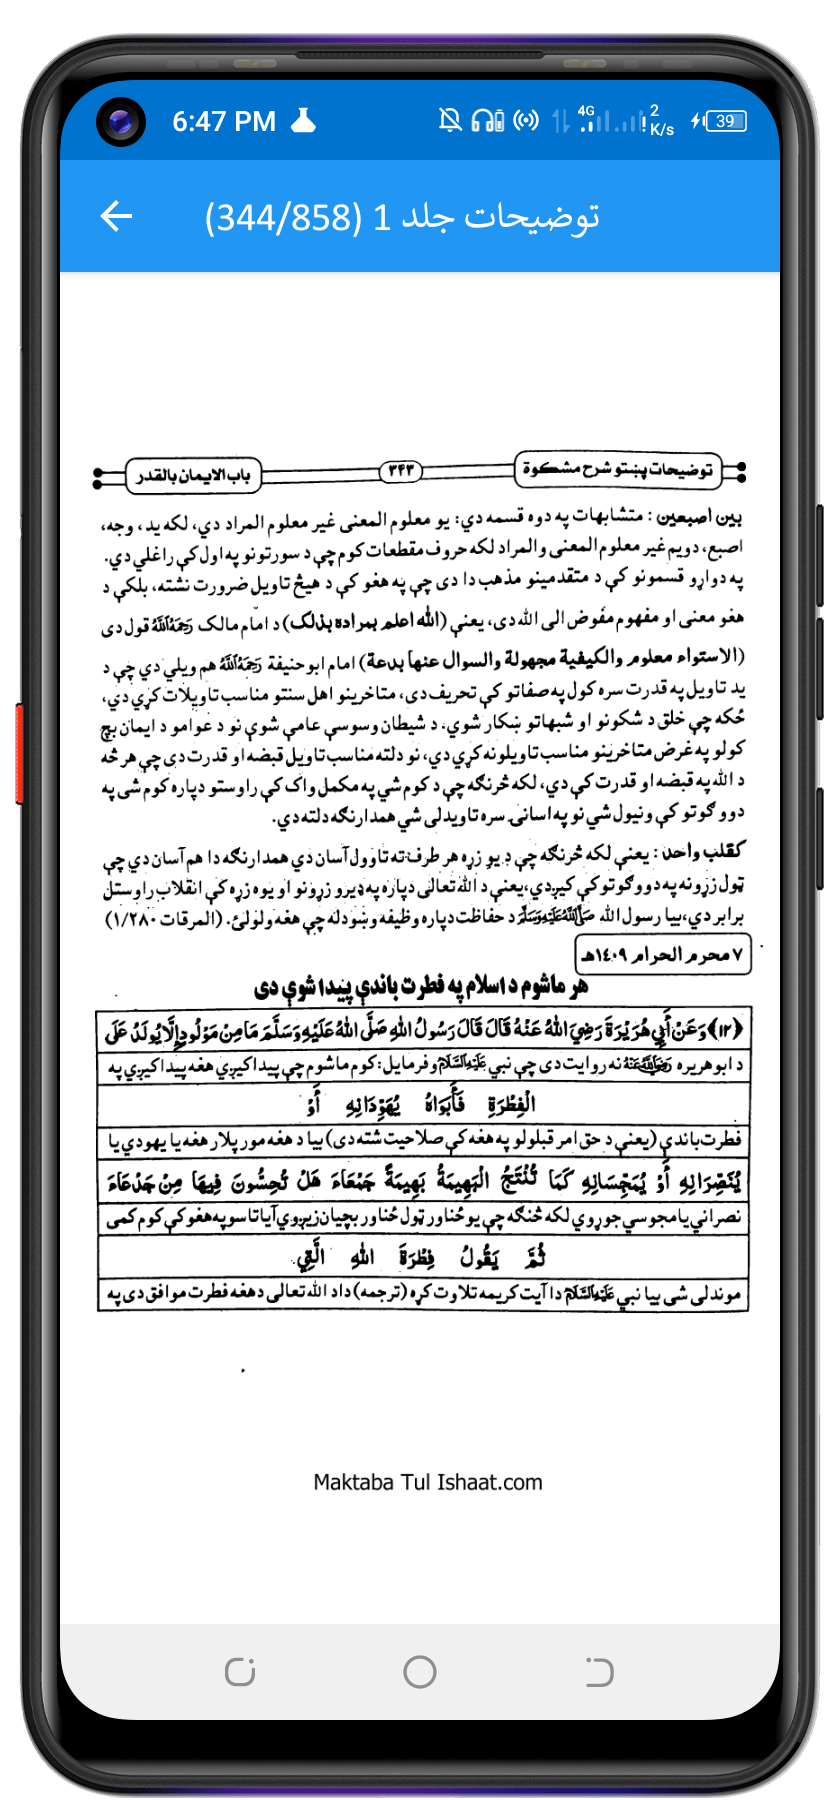 6:47 PM 4G 2 K/s 39
توضیحات جلد 1 (344/858)
توضیحات پښتو شرح مشکوة ۳۴۳ باب الایمان بالقدر
بین اصبعین : متشابهات په دوه قسمه دي: یو معلوم المعنی غیر معلوم المراد دي، لکه ید، وجه،
اصبع، دویم غیر معلوم المعنی والمراد لکه حروف مقطعات کوم چې د سورتونو په اول کې راغلي دي.
په دواړو قسمونو کې د متقدمینو مذهب دا دی چې په هغو کې د هیڅ تاویل ضرورت نشته، بلکې د
هغو معنی او مفهوم مفوض الی الله دی، یعنې (الله اعلم بمراده بذلک) د امام مالک رَحِمَهُ اللَّهُ قول دی
(الاستواء معلوم والکیفیة مجهولة والسوال عنها بدعة) امام ابوحنیفة رَحِمَهُ اللَّهُ هم ویلي دي چې د
ید تاویل په قدرت سره کول په صفاتو کې تحریف دی، متاخرینو اهل سنتو مناسب تاویلات کړي دي،
ځکه چې خلق د شکونو او شبهاتو ښکار شوي، د شیطان وسوسې عامې شوې نو د عوامو د ایمان بچ
کولو په غرض متاخرینو مناسب تاویلونه کړي دي، نو دلته مناسب تاویل قبضه او قدرت دی چې هر څه
د الله په قبضه او قدرت کې دي، لکه څرنګه چې د کوم شي په مکمل واک کې راوستو دپاره کوم شی په
دوو ګوتو کې ونیول شي نو په اسانۍ سره تاویدلی شي همدارنګه دلته دي.
کقلب واحد : یعنې لکه څرنګه چې د یو زړه هر طرف ته تاوول آسان دي همدارنګه دا هم آسان دي چې
ټول زړونه په دوو ګوتو کې کیږدي، یعنې د الله تعالی دپاره په ډیرو زړونو او یوه زړه کې انقلاب راوستل
برابر دي، بیا رسول الله صَلَّى اللَّهُ عَلَيْهِ وَسَلَّمَ د حفاظت دپاره وظیفه وښودله چې هغه ولولئ. (المرقات ۱/۲۸۰)
۷ محرم الحرام ۱٤۰۹هـ
هر ماشوم د اسلام په فطرت باندې پیدا شوې دی
﴿۱۲﴾ وَعَنْ أَبِي هُرَيْرَةَ رَضِيَ اللهُ عَنْهُ قَالَ قَالَ رَسُولُ اللهِ صَلَّى اللهُ عَلَيْهِ وَسَلَّمَ مَا مِنْ مَوْلُودٍ إِلَّا يُولَدُ عَلَى
د ابوهریره رَضِيَ اللَّهُ عَنْهُ نه روایت دی چې نبي عَلَيْهِ السَّلَامُ وفرمایل: کوم ماشوم چې پیدا کیږي هغه پیدا کیږي په
الْفِطْرَةِ فَأَبَوَاهُ يُهَوِّدَانِهِ أَوْ
فطرت باندې (یعنې د حق امر قبلولو په هغه کې صلاحیت شته دی) بیا د هغه مور پلار هغه یا یهودي یا
يُنَصِّرَانِهِ أَوْ يُمَجِّسَانِهِ كَمَا تُنْتَجُ الْبَهِيمَةُ بَهِيمَةً جَمْعَاءَ هَلْ تُحِسُّونَ فِيهَا مِنْ جَدْعَاءَ
نصراني یا مجوسي جوړوي لکه څنګه چې یو ځناور ټول ځناور بچیان زیږوي آیا تاسو په هغو کې کوم کمی
ثُمَّ يَقُولُ فِطْرَةَ اللهِ الَّتِي
موندلی شی بیا نبي عَلَيْهِ السَّلَامُ دا آیت کریمه تلاوت کړه (ترجمه) دا د الله تعالی د هغه فطرت موافق دی په
Maktaba Tul Ishaat.com